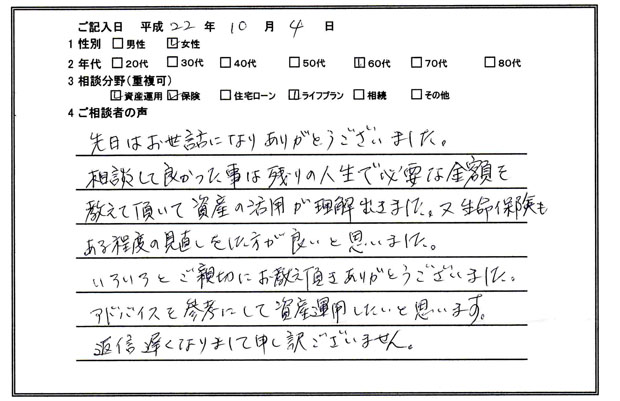 ご記入日 平成 22 年 10 月 4 日
1 性別 □男性 ☑女性
2 年代 □20代 □30代 □40代 □50代 ☑60代 □70代 □80代
3 相談分野(重複可)
☑資産運用 ☑保険 □住宅ローン ☑ライフプラン □相続 □その他
4 ご相談者の声
先日はお世話になりありがとうございました。
相談して良かった事は残りの人生で必要な金額を
教えて頂いて資産の活用が理解出きました。又生命保険も
ある程度の見直しをした方が良いと思いました。
いろいろとご親切にお教え頂きありがとうございました。
アドバイスを参考にして資産運用したいと思います。
返信遅くなりまして申し訳ございません。